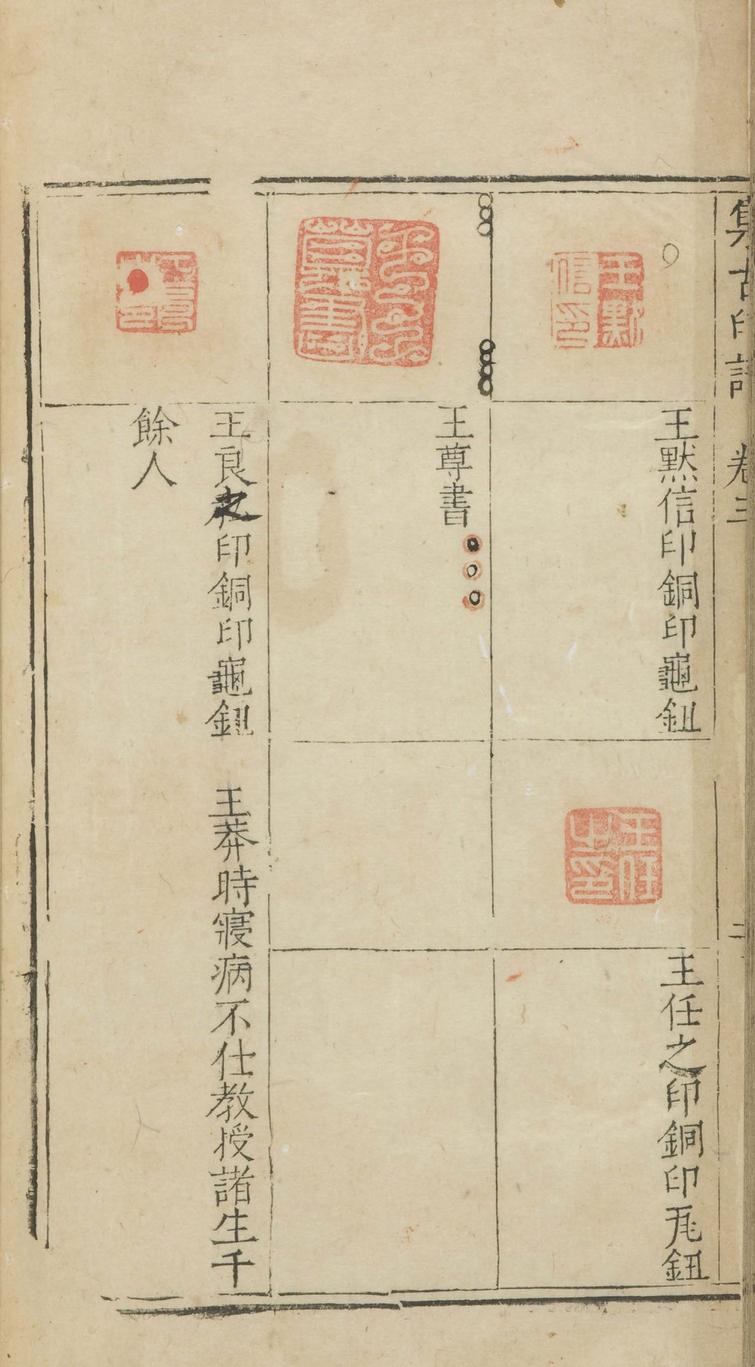 集古印譜 卷三
二
王默信印
王默信印銅印龜鈕
王任之印
王任之印銅印瓦鈕
王尊書
王良之印銅印龜鈕 王莽時寢病不仕教授諸生千
餘人